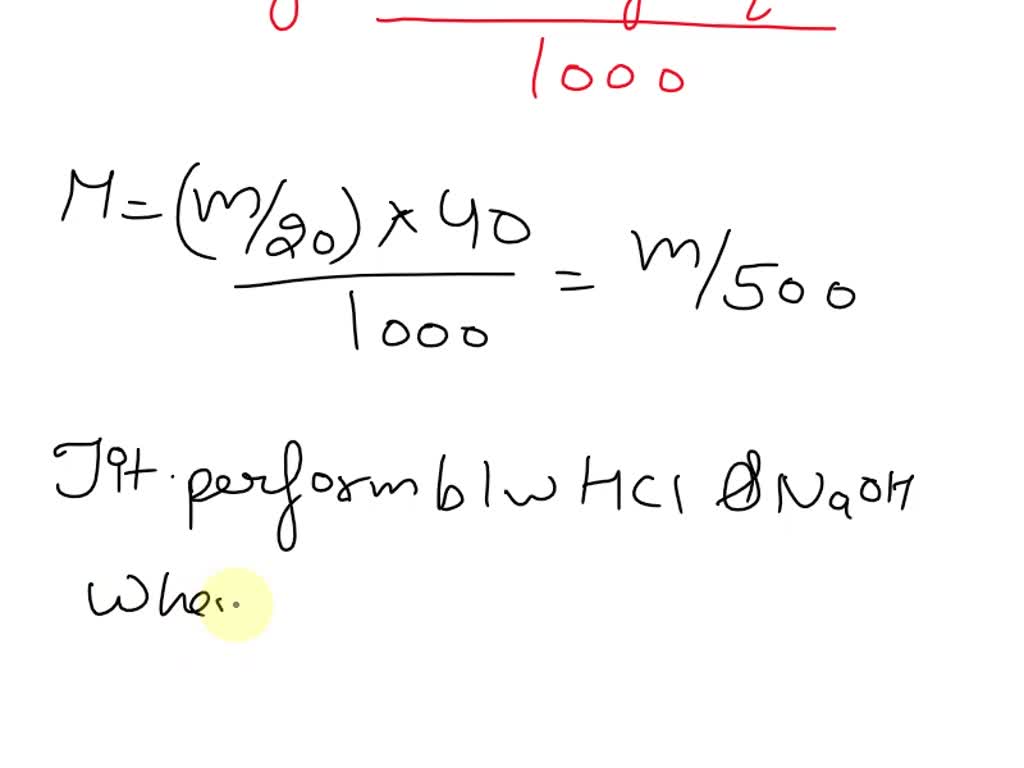 1000
M = (m/20) × 40
1000
= m/500
Tit. perform b/w HCl & NaOH
Wher